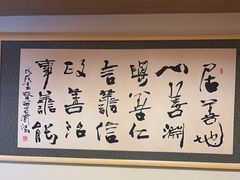 居善地
心善淵
與善仁
言善信
政善治
事善能